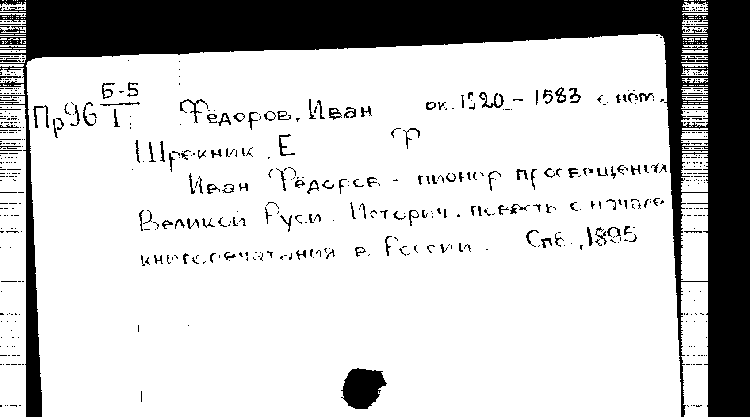 Б-Б
Пр96 I Фёдоров, Иван ок. 1520 - 1583
Шрекник, Е Ф
Иван Фёдоров - пионер просвещения
Великой Руси. Историч. повесть о начале
книгопечатания в России. Спб., 1895